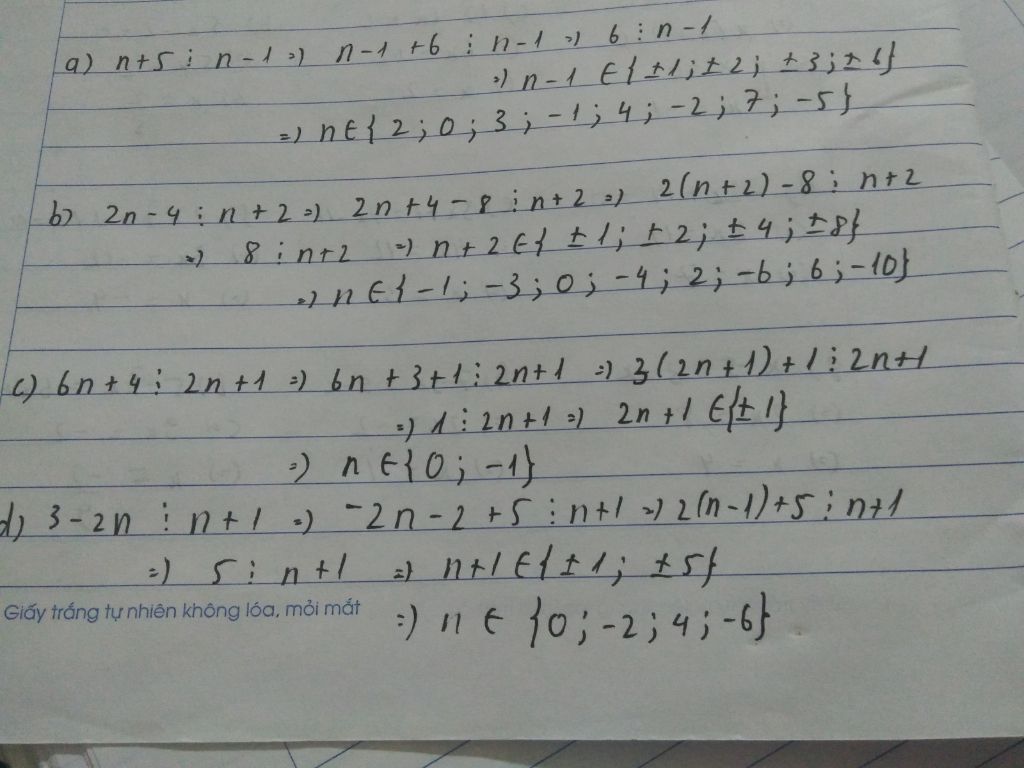 a) n+5 ⋮ n-1 => n-1+6 ⋮ n-1 => 6 ⋮ n-1
=> n-1 ∈ {±1; ±2; ±3; ±6}
=> n ∈ {2; 0; 3; -1; 4; -2; 7; -5}
b) 2n-4 ⋮ n+2 => 2n+4-8 ⋮ n+2 => 2(n+2)-8 ⋮ n+2
=> 8 ⋮ n+2 => n+2 ∈ {±1; ±2; ±4; ±8}
=> n ∈ {-1; -3; 0; -4; 2; -6; 6; -10}
c) 6n+4 ⋮ 2n+1 => 6n+3+1 ⋮ 2n+1 => 3(2n+1)+1 ⋮ 2n+1
=> 1 ⋮ 2n+1 => 2n+1 ∈ {±1}
=> n ∈ {0; -1}
d) 3-2n ⋮ n+1 => -2n-2+5 ⋮ n+1 => 2(n-1)+5 ⋮ n+1
=> 5 ⋮ n+1 => n+1 ∈ {±1; ±5}
Giấy trắng tự nhiên không lóa, mỏi mắt
=> n ∈ {0; -2; 4; -6}